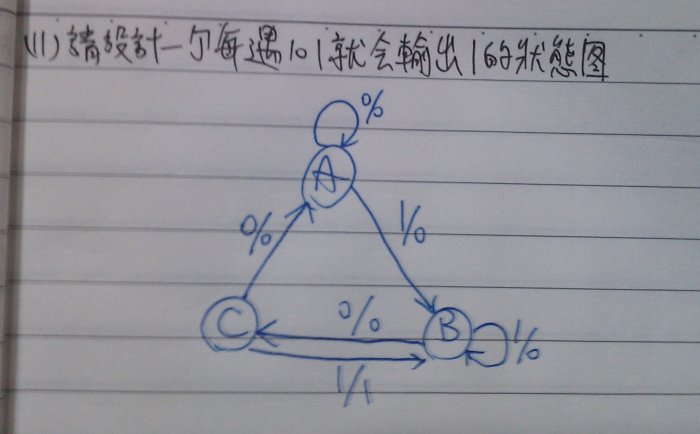 (11)請設計一个每遇101就会輸出1的狀態图
0/0
A
0/0
1/0
C
0/0
B
1/0
1/1